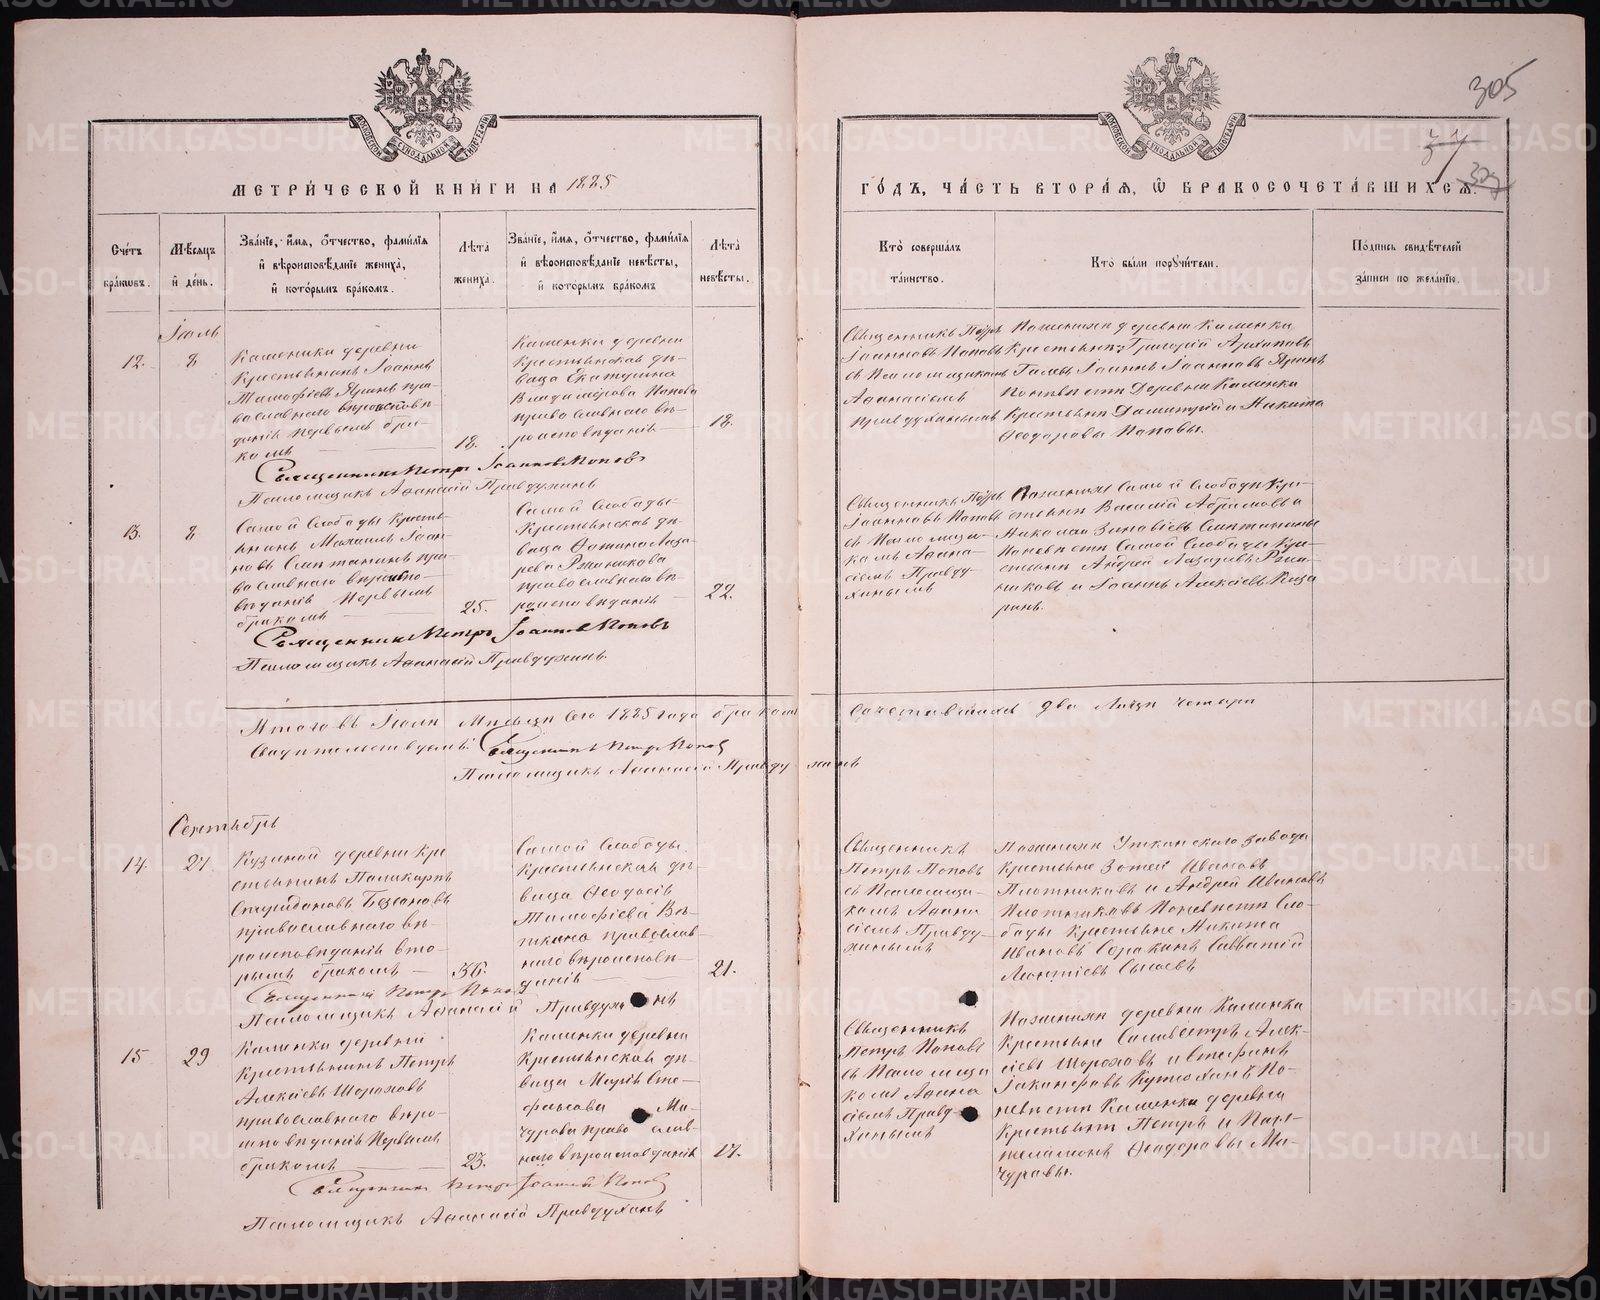 305
МЕТРИ́ЧЕСКОЙ КНИ́ГИ НА 1885
ГО́ДЪ, ЧА́СТЬ ВТОРА́Я, Ѿ БРАКОСОЧЕТА́ВШИХСЯ.
Сче́тъ бра́кѡвъ.
Мѣ́сяцъ и҆ де́нь.
Зва́нїе, и҆́мя, о҆́тчество, фами́лїя и҆ вѣроисповѣ́данїе жениха̀, и҆ кото́рымъ бра́комъ.
Лѣ́та жениха̀.
Зва́нїе, и҆́мя, о҆́тчество, фами́лїя и҆ вѣроисповѣ́данїе невѣ́сты, и҆ кото́рымъ бра́комъ
Лѣ́та невѣ́сты.
Кто̀ соверша́лъ та́инство.
Кто̀ бы́ли порꙋчи́тели.
По́дпись свидѣ́телей за́писи по жела́нїю.
Іюль
12.
8
Каменки деревни
крестьянинъ Іоаннъ
Тимофіевъ Яринъ пра-
вославнаго вѣроисповѣ-
данія первымъ бра-
комъ
18.
Каменки деревни
крестьянская дѣ-
вица Екатерина
Владимірова Попова
православнаго вѣ-
роисповѣданія
18.
Священникъ Петръ
Іоанновъ Поповъ
съ Псаломщикомъ
Аѳанасіемъ
Правдухинымъ
По женихѣ деревни Каменки
крестьяне: Григорій Архиповъ
Іоаннъ Іоанновъ Яринъ
По невѣстѣ Деревни Каменки
Крестьяне Димитрій и Никита
Ѳеодоровы Поповы.
Священникъ Петръ Іоанновъ Поповъ
Псаломщикъ Аѳанасій Правдухинъ
13.
8
Самой Слободы кресть-
янинъ Михаилъ Іоан-
новъ Сметанинъ пра-
вославнаго вѣроиспо-
вѣданія Первымъ
бракомъ
25.
Самой Слободы
Крестьянская дѣ-
вица Фотина Лаза-
рева
православнаго вѣ-
роисповѣданія
22.
Священникъ Петръ
Іоанновъ Поповъ
съ Псаломщи-
комъ Аѳана-
сіемъ Правду-
хинымъ
По женихѣ Самой Слободы Кре-
стьяне Василій Абрамовъ и
Николай Зиновіевъ Сметанины
По невѣстѣ Самой Слободы Кре-
стьяне Андрей Лазаревъ
и Іоаннъ Алексіевъ
Священникъ Петръ Іоанновъ Поповъ
Псаломщикъ Аѳанасій Правдухинъ.
Итого въ Іюлѣ Мѣсяцѣ сего 1885 года бракомъ сочетавшихся два Лицъ четыре
Свидѣтельствуемъ: Священникъ Петръ Поповъ
Псаломщикъ Аѳанасій Правдухинъ
Сентябрь
14.
27.
Кузиной деревни Кре-
стьянинъ Поликарпъ
Спиридоновъ Безсоновъ
православнаго вѣ-
роисповѣданія вто-
рымъ бракомъ
36.
Самой Слободы
Крестьянская дѣ-
вица Ѳеодосія
Тимофіева Вя-
ткина православ-
наго вѣроисповѣ-
данія
21.
Священникъ
Петръ Поповъ
съ Псаломщи-
комъ Аѳана-
сіемъ Правду-
хинымъ
По женихѣ Уткинскаго Завода
Крестьяне Зотей Ивановъ
Плотниковъ и Андрей Ивановъ
Плотниковъ По невѣстѣ Сло-
боды Крестьяне Никита
Ивановъ Савватій
Леонтіевъ Сысоевъ
Священникъ Петръ Поповъ
Псаломщикъ Аѳанасій Правдухинъ
15
29
Каменки деревни
Крестьянинъ Петръ
Алексіевъ Шороховъ
православнаго вѣро-
исповѣданія Первымъ
бракомъ
23.
Каменки деревни
Крестьянская дѣ-
вица Марія Сте-
фанова Ма-
чурова православ-
наго вѣроисповѣданія
17.
Священникъ
Петръ Поповъ
съ Псаломщи
комъ Аѳана
сіемъ Правд-
хинымъ
По женихѣ деревни Каменки
Крестьяне Сильвестръ Алек-
сіевъ Шороховъ и Стефанъ
По-
невѣстѣ Каменки деревни
Крестьяне Петръ и Пан-
телимонъ Ѳеодоровы Ма-
чуровы.
Священникъ Петръ Іоанновъ Поповъ
Псаломщикъ Аѳанасій Правдухинъ
METRIKI.GASO-URAL.RU